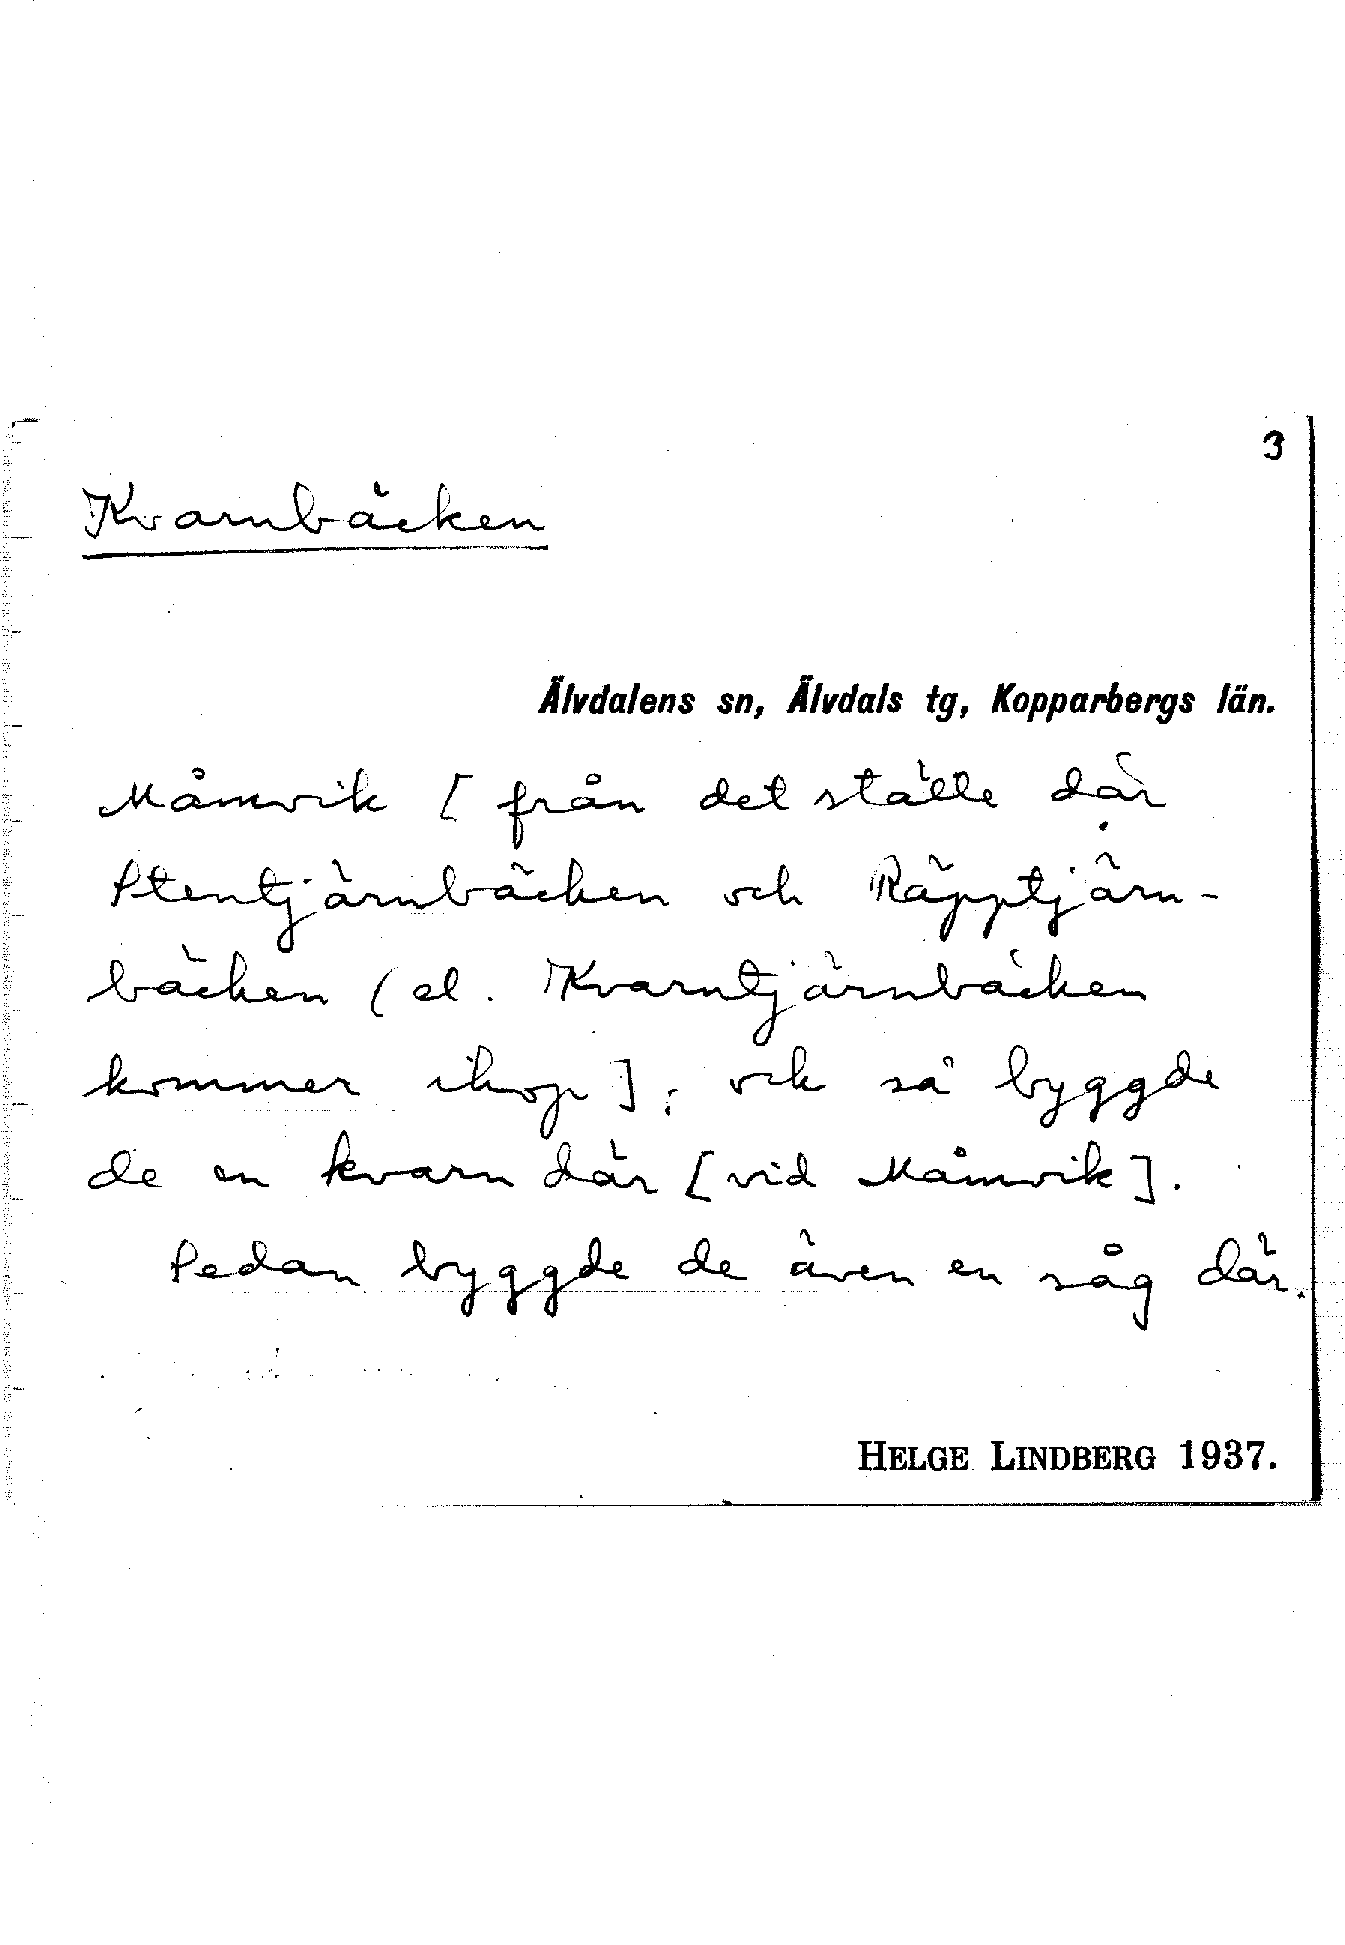 3
Kvarnbäcken
Älvdalens sn, Älvdals tg, Kopparbergs län.
Måmvik [ från det ställe där
Stentjärnbäcken och Räpptjärn-
bäcken ( el. Kvarntjärnbäcken
kommer ihop ]; och så byggde
de en kvarn där [ vid Måmvik ].
Sedan byggde de även en såg där.
HELGE LINDBERG 1937.